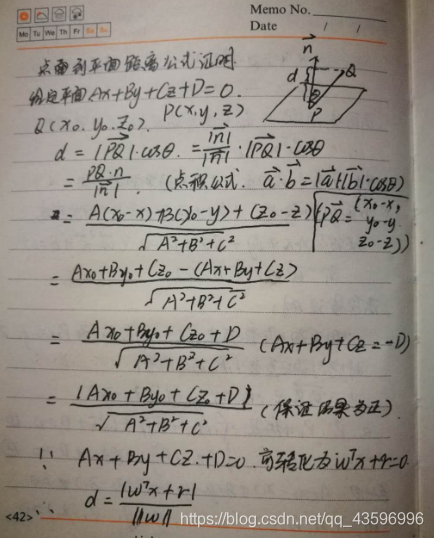 Memo No.
Mo Tu We Th Fr Sa Su
Date / /
点面到平面距离公式证明.
给定平面Ax+By+Cz+D=0.
Q(x₀, y₀, z₀). P(x,y,z)
n⃗
d
Q
θ
P
d = |PQ⃗|·cosθ. = |n⃗|/|n⃗| · |PQ⃗|·cosθ
= PQ·n/|n⃗| . (点积公式. a⃗·b⃗ = |a⃗||b⃗|·cosθ)
= A(x₀-x)+B(y₀-y)+C(z₀-z) / √A²+B²+C² (PQ⃗ = (x₀-x, y₀-y, z₀-z))
= Ax₀+By₀+Cz₀-(Ax+By+Cz) / √A²+B²+C²
= Ax₀+By₀+Cz₀+D / √A²+B²+C² (Ax+By+Cz=-D)
= |Ax₀+By₀+Cz₀+D| / √A²+B²+C² (保证结果为正).
∵ Ax+By+Cz+D=0. 可转化为 wᵀx+r=0
∴ d = |wᵀx+r| / ||w||
<42>
https://blog.csdn.net/qq_43596996